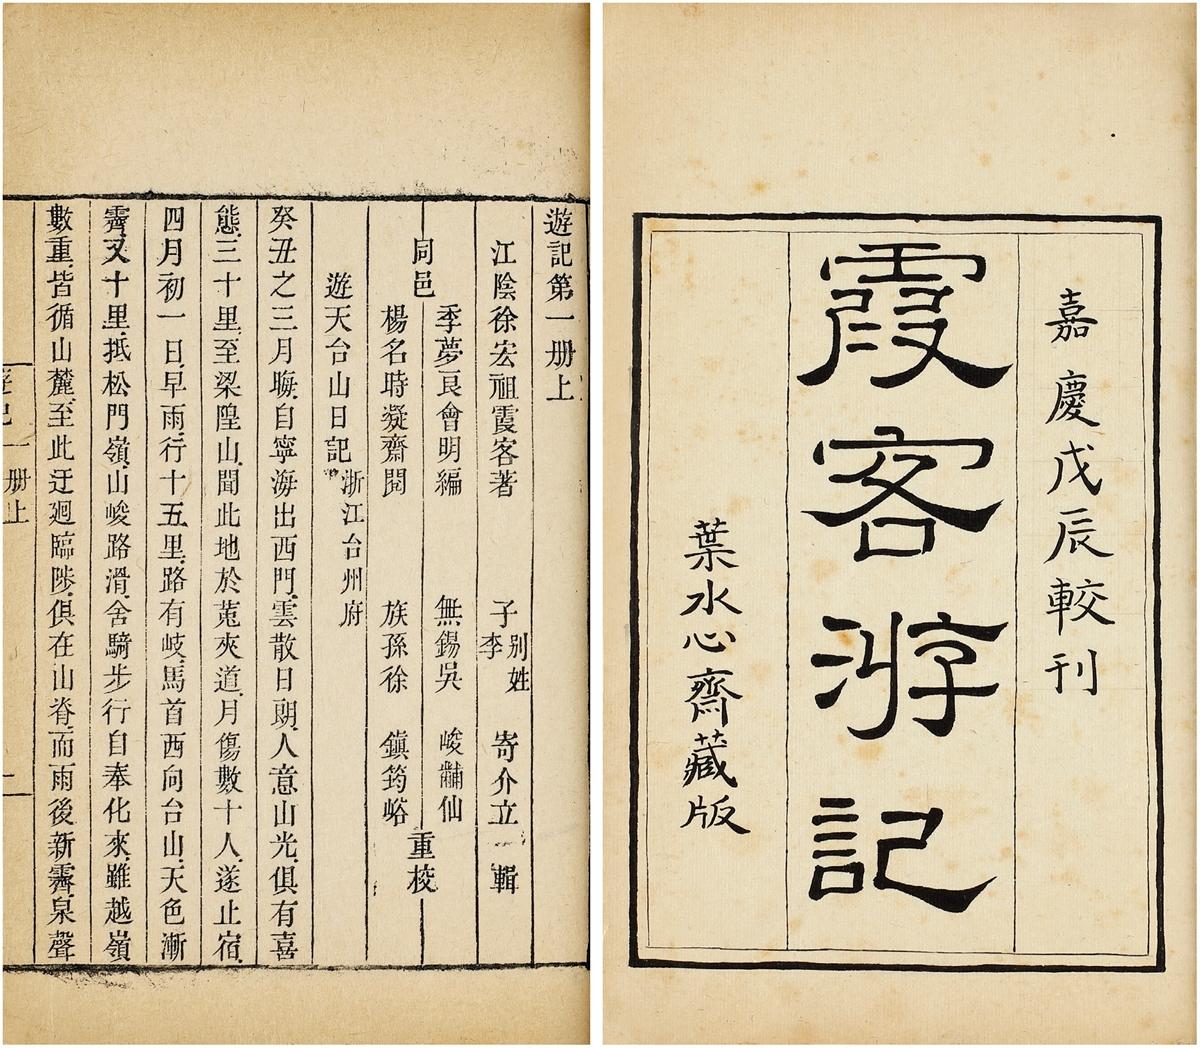 嘉慶戊辰較刊
霞客游記
葉水心齋藏版
遊記第一册上
江陰徐宏祖霞客著 子李别姓寄介立輯
同邑
季夢良會明編 無錫吳峻黼仙
楊名時凝齋閱 族孫徐鎮筠峪
重校
遊天台山日記浙江台州府
癸丑之三月晦自寧海出西門雲散日朗人意山光俱有喜
態三十里至梁隍山聞此地於菟夾道月傷數十人遂止宿
四月初一日早雨行十五里路有岐馬首西向台山天色漸
霽又十里抵松門嶺山峻路滑舍騎步行自奉化來雖越嶺
數重皆循山麓至此迂迴臨陟俱在山脊而雨後新霽泉聲
遊記一册上
一